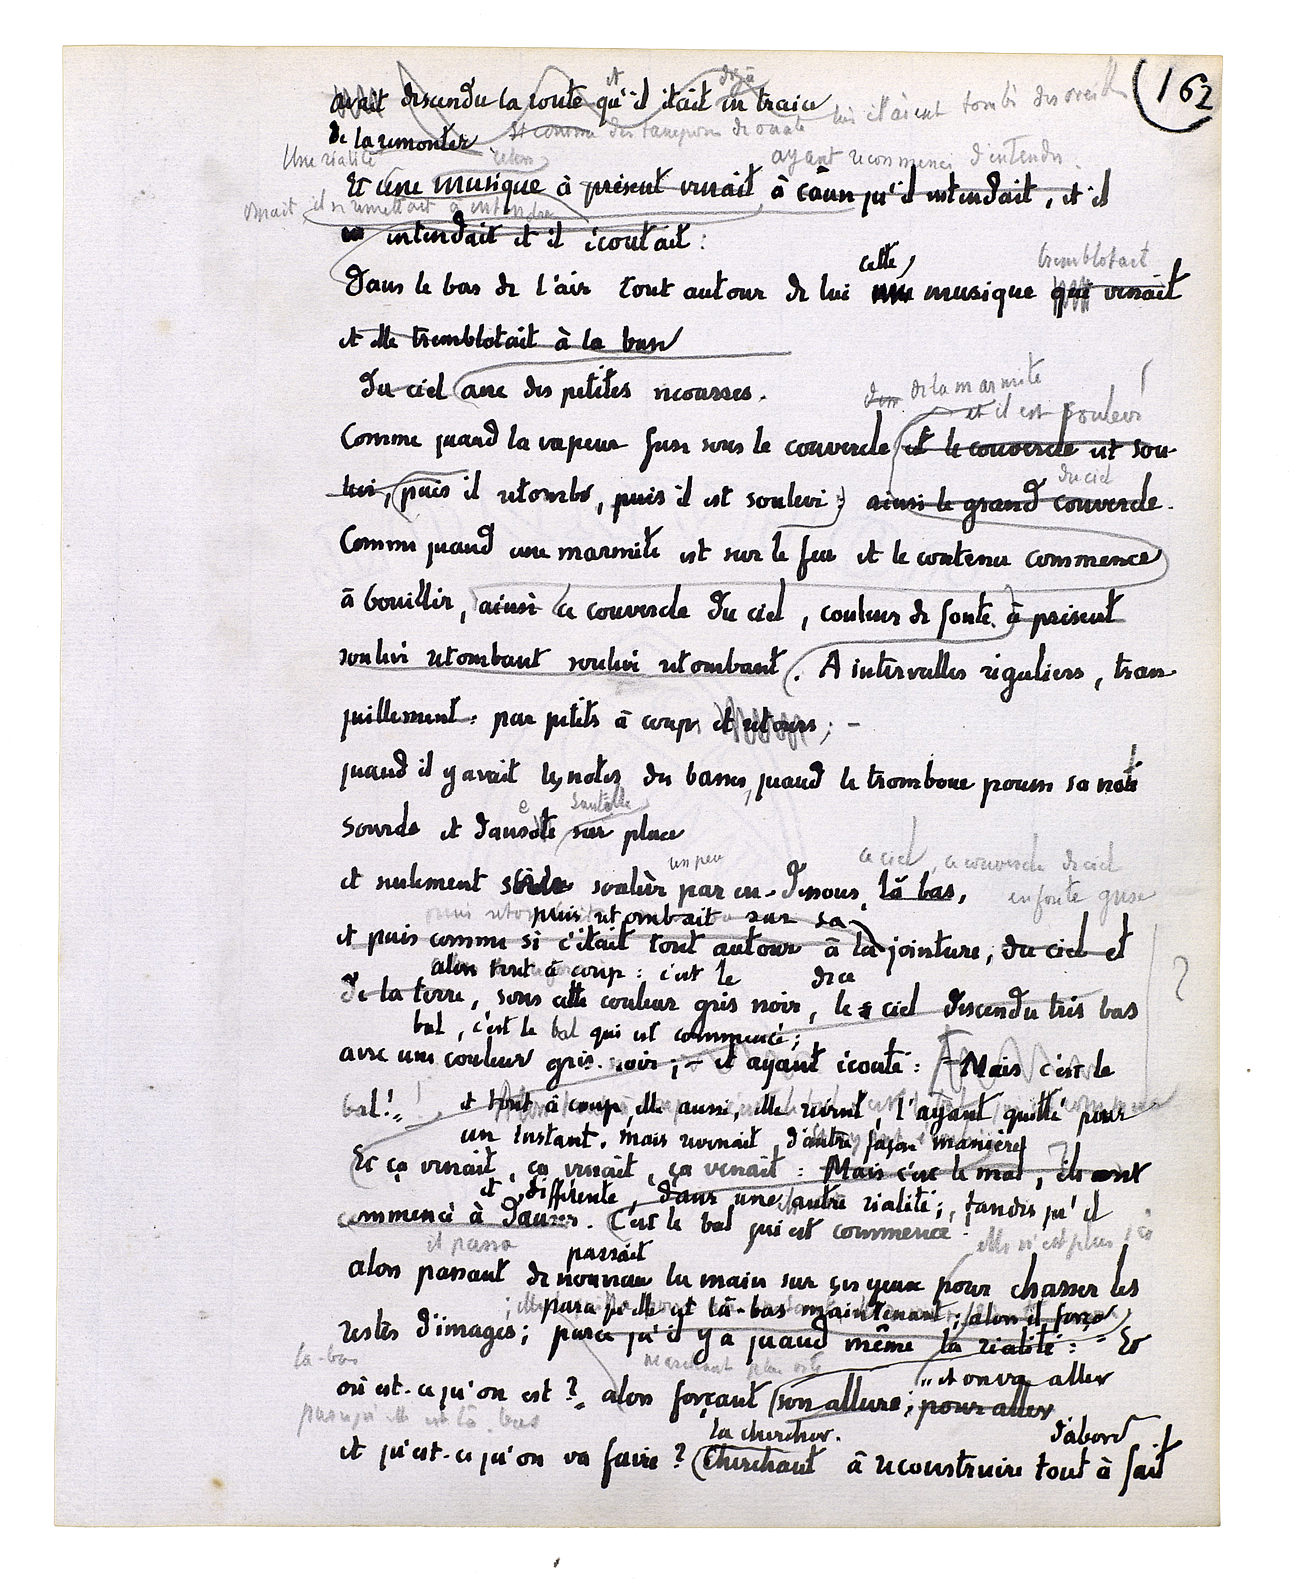 162
et déjà
avait descendu la route qu'il était en train lui étaient tombés des oreilles
de la remonter et comme des tampons de ouate
Une réalité ayant recommencé d'entendre.
Et une musique à présent venait, à cause qu'il entendait, et il
venait, il se remettait à entendre
entendait et il écoutait :
cette tremblotait
Dans le bas de l'air tout autour de lui une musique qui venait
et elle tremblotait à la base
du ciel avec des petites secousses.
de la marmite
et il est soulevé
Comme quand la vapeur fuse sous le couvercle et le couvercle est sou-
du ciel
levé, puis il retombe, puis il est soulevé ; ainsi le grand couvercle.
Comme quand une marmite est sur le feu et le contenu commence
à bouillir, ainsi le couvercle du ciel, couleur de fonte, à présent
soulevé retombant soulevé retombant. A intervalles réguliers, tran-
quillement : par petits à coups et retours ; –
quand il y avait les notes des basses, quand le trombone pousse sa note
sautille
sourde et danse sur place
un peu ce ciel, ce couvercle de ciel
et seulement se soulève par en-dessous, là bas, en fonte grise
puis retombait sur sa
et puis comme si c'était tout autour à la jointure, du ciel et
alors tout à coup : c'est le
de la terre, sous cette couleur gris noir, le ciel descendu très bas ?
bal, c'est le bal qui est commencé ;
avec une couleur gris-noir ; – et ayant écouté : – Mais c'est le
bal ! et tout à coup, elle aussi, elle revint, l'ayant quitté pour
un instant. Mais revenait, d'autre façon manière
Et ça venait, ça venait, ça venait : Mais c'est le mai, ils ont
et différente, dans une autre réalité ; tandis qu'il
commencé à danser. C'est le bal qui est commencé.
il passa passait elle n'est plus ici
alors passant de nouveau la main sur ses yeux pour chasser les
parce qu'elle est là-bas maintenant ; alors il força
restes d'images ; parce qu'il y a quand même la réalité : " Et
là-bas marchant plus vite " et on va aller
où est-ce qu'on est ? " alors forçant son allure ; pour aller
parce qu'elle est là-bas la chercher. d'abord
et qu'est-ce qu'on va faire ? Cherchant à reconstruire tout à fait